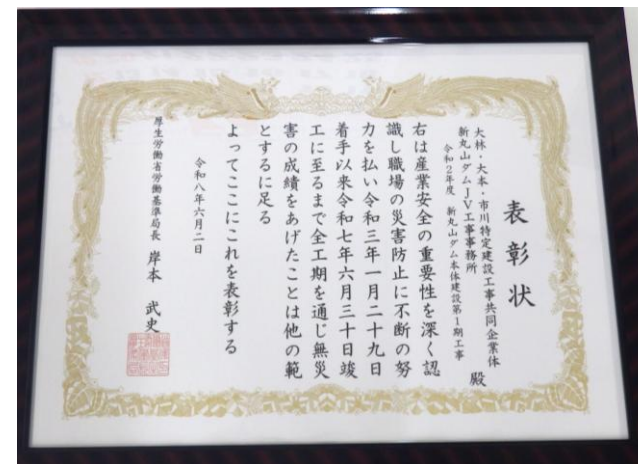 表彰状
大林・大本・市川特定建設工事共同企業体
新丸山ダムJV工事事務所
令和2年度 新丸山ダム本体建設第1期工事
殿
右は産業安全の重要性を深く認
識し職場の災害防止に不断の努
力を払い令和三年一月二十九日
着手以来令和七年六月三十日竣
工に至るまで全工期を通じ無災
害の成績をあげたことは他の範
とするに足る
よってここにこれを表彰する
令和八年六月二日
厚生労働省労働基準局長 岸本 武史